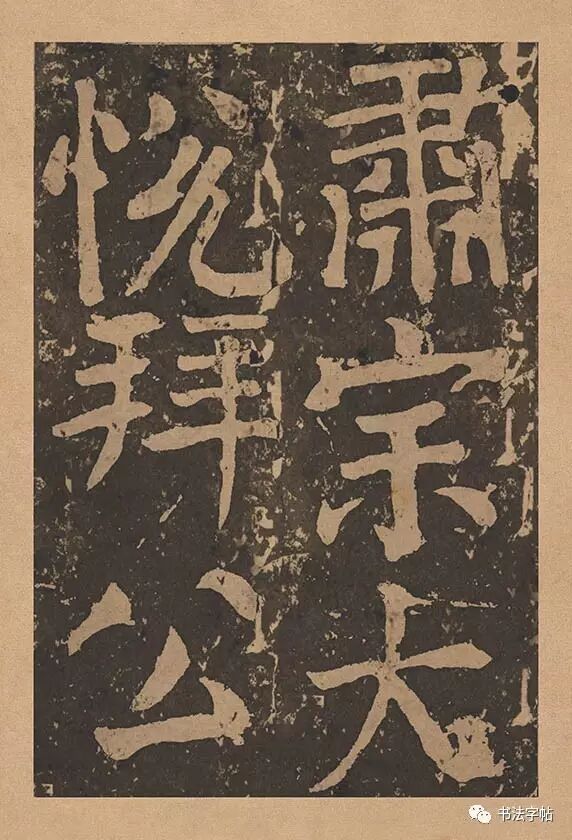 肅宗大
悅拜公
书法字帖